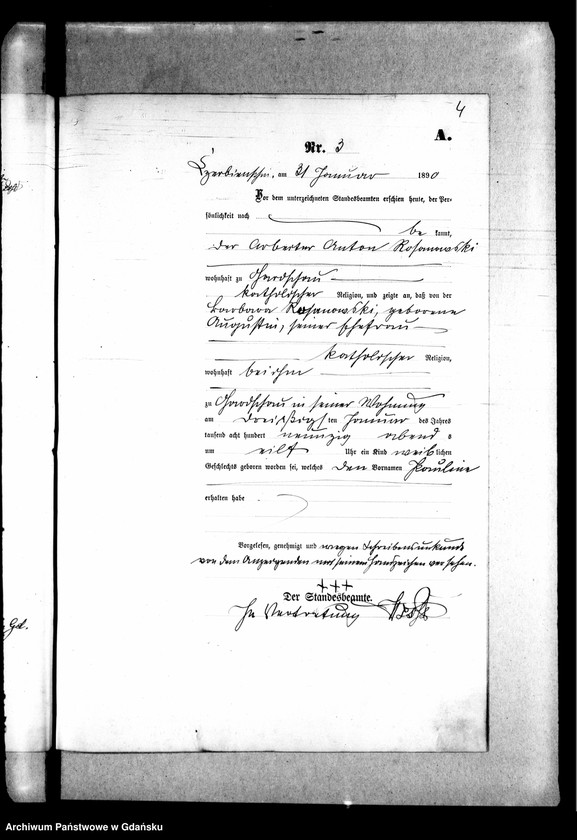 4
A.
Nr. 3
Czerbienschin, am 31 Januar 1890
Vor dem unterzeichneten Standesbeamten erschien heute, der Per-
sönlichkeit nach
be kannt,
der Arbeiter Anton Rosanowski
wohnhaft zu Gardschau
katholischer Religion, und zeigte an, daß von der
Barbara Rosanowski, geborene
Augustin, seiner Ehefrau
katholischer Religion,
wohnhaft bei ihm
zu Gardschau in seiner Wohnung
am dreißigsten Januar des Jahres
tausend acht hundert neunzig abend s
um eilf Uhr ein Kind weiblichen
Geschlechts geboren worden sei, welches den Vornamen Pauline
erhalten habe
Vorgelesen, genehmigt und wegen Schreibensunkunde
von dem Anzeigenden mit seinem Handzeichen versehen.
+++
Der Standesbeamte.
In Vertretung
Gel.
Archiwum Państwowe w Gdańsku